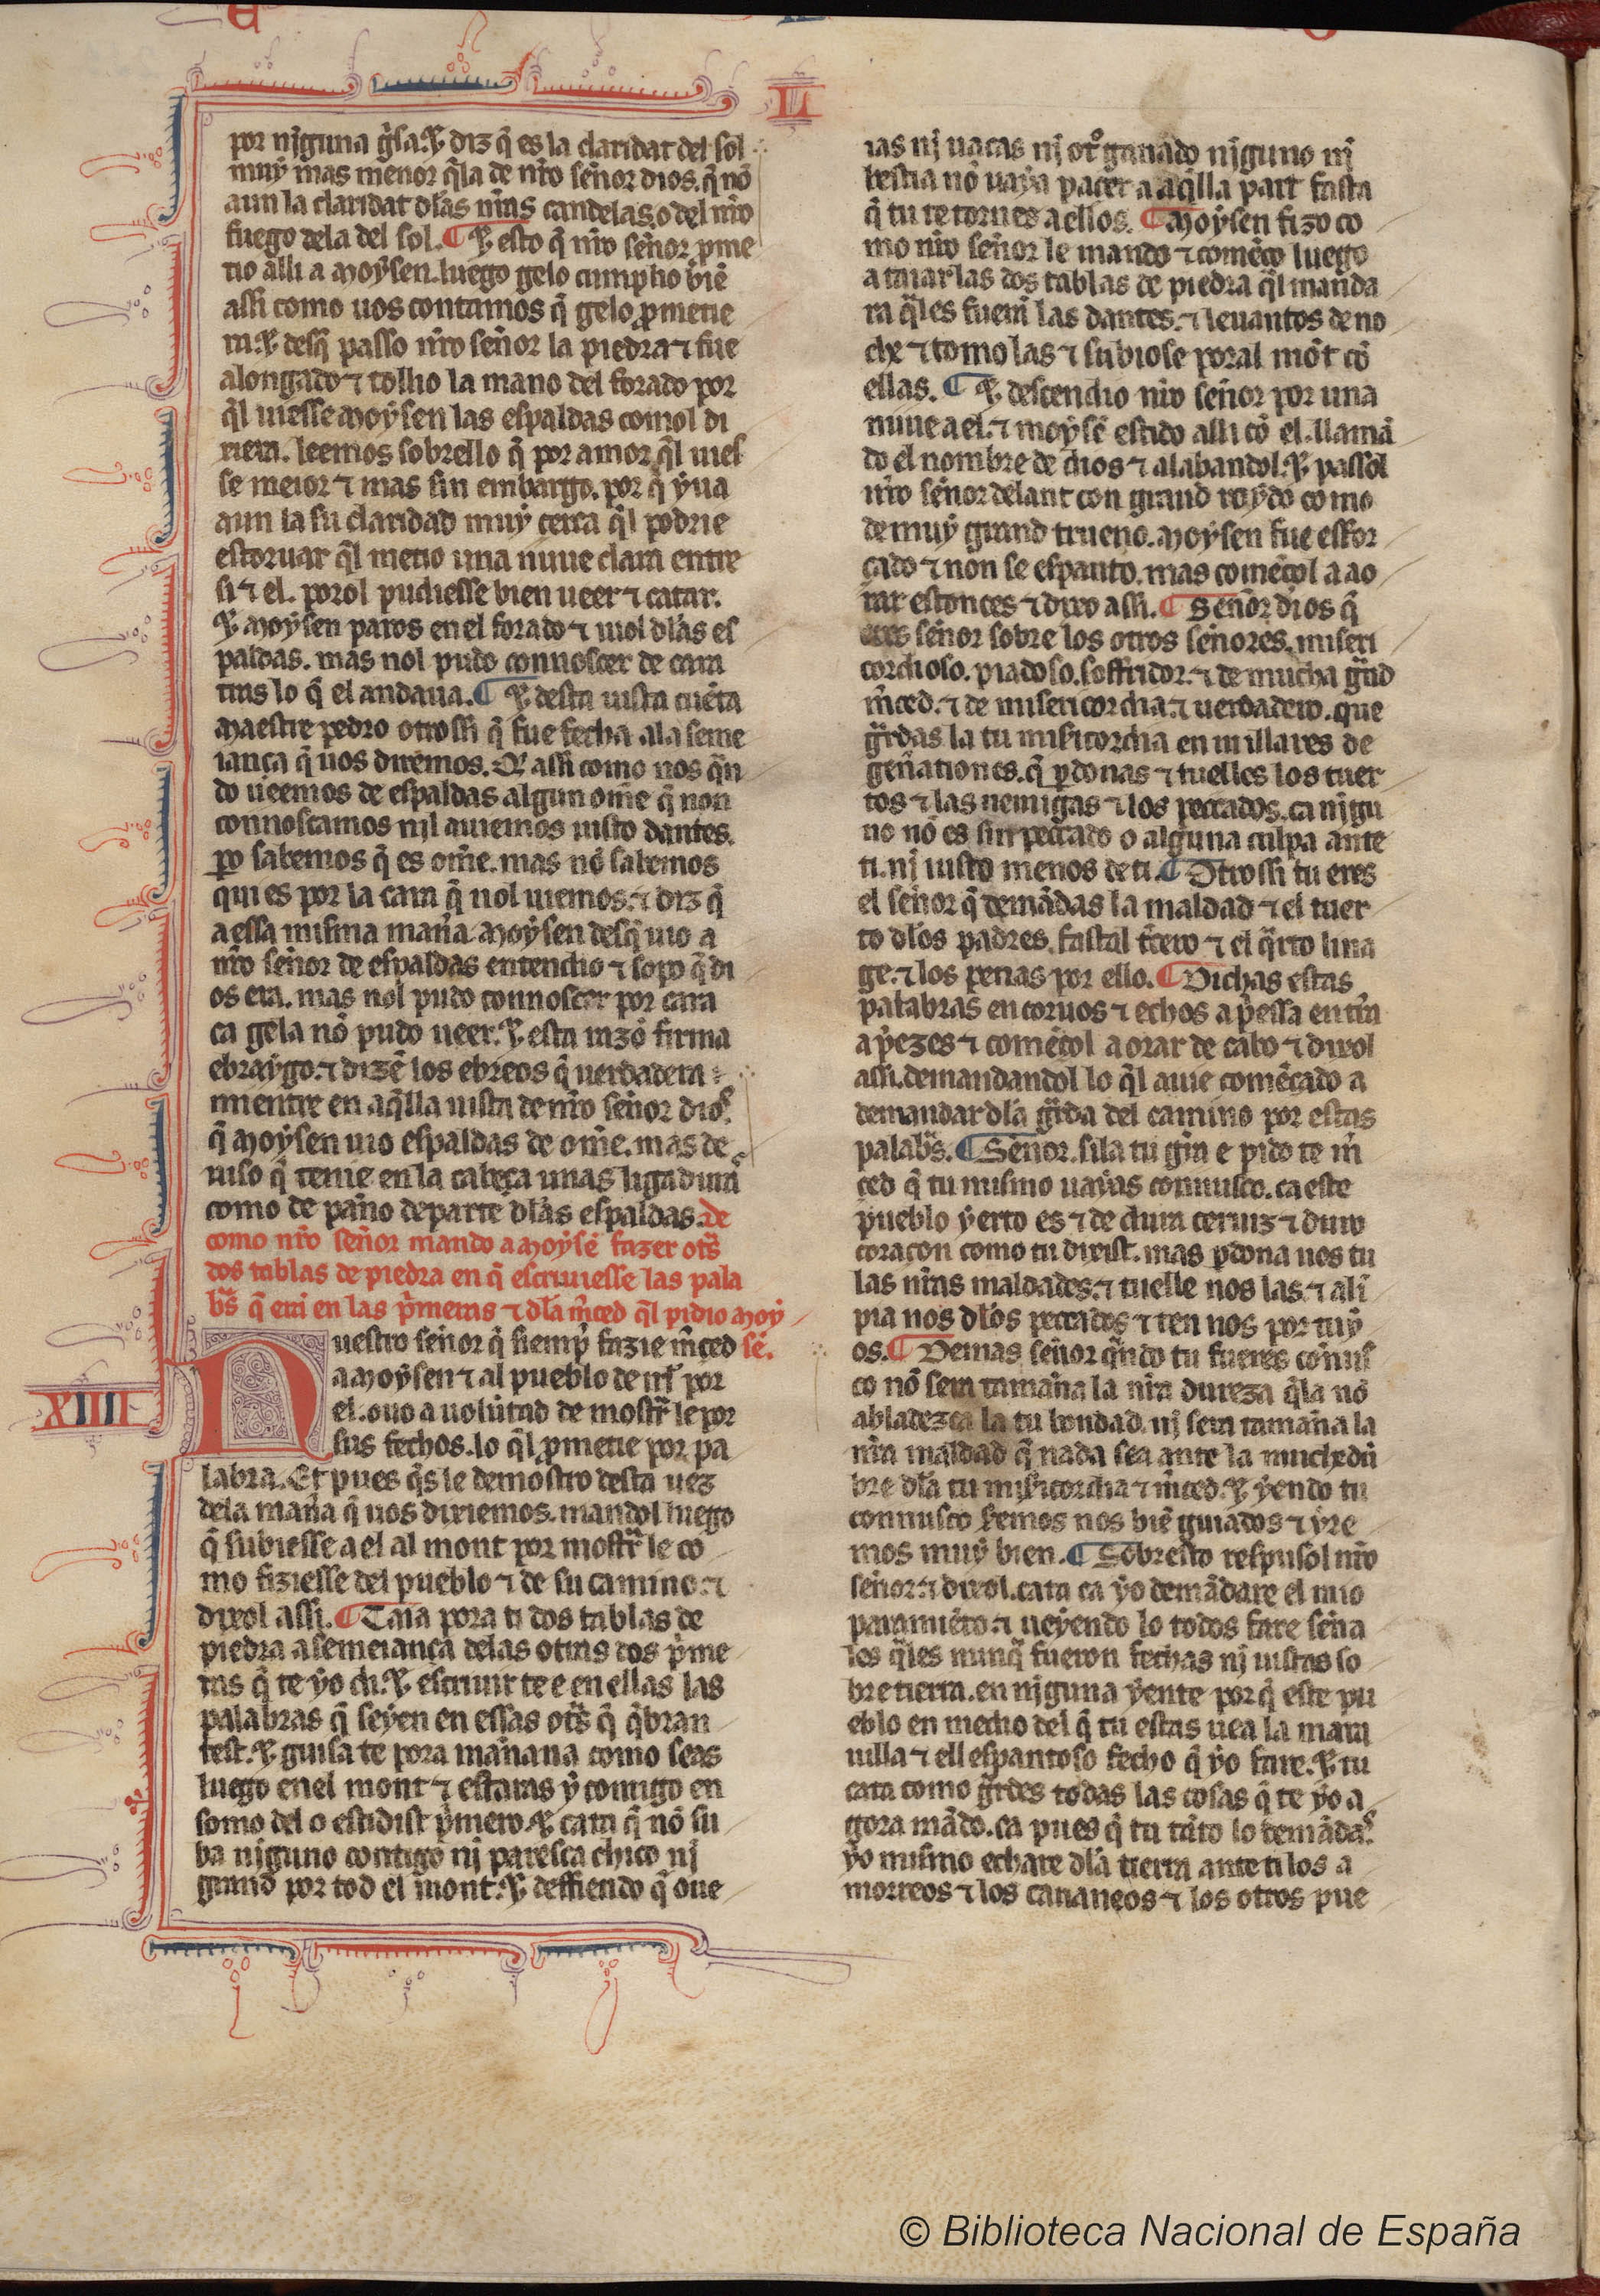 LI
por njguna gͥsa. ⁊ diz q̄ es la claridat del sol
muẏ mas menor q̄la de nr̄o sen̄or dios. q̄ nō
aun la claridat dlas nr̄as candelas. o del nr̄o
fuego dela del sol. ¶ ⁊ esto q̄ nr̄o sen̄or ꝓme
tio alli a moẏsen. luego gelo cumplio biē
assi como uos contamos q̄ gelo ꝓmetie
ra. ⁊ desq̄ passo nr̄o sen̄or la piedra ⁊ fue
alongado ⁊ tollio la mano del forado por
q̄l uiesse moẏsen las espaldas comol di
xiera. leemos sobrello q̄ por amor q̄l uies
se meior ⁊ mas sin embargo. por q̄ ẏua
aun la su claridad muẏ cerca q̄l podrie
estoruar q̄l metio una nuue clara entre
si ⁊ el. porol pudiesse bien ueer ⁊ catar.
⁊ moẏsen paros en el forado ⁊ uiol dlas es
paldas. mas nol pudo connoscer de cara
tras lo q̄ el andaua. ¶ ⁊ desta uista cuēta
maestre pedro otrossi q̄ fue fecha ala seme
iança q̄ uos diremos. O assi como nos q̄n
do ueemos de espaldas algun om̄e q̄ non
connoscamos njl auiemos uisto dantes.
ꝑo sabemos q̄ es om̄e. mas nō sabemos
qui es por la cara q̄ nol uiemos. ⁊ diz q̄
a essa misma man̄a moẏsen desq̄ uio a
nr̄o sen̄or de espaldas entendio ⁊ sopo q̄ di
os era. mas nol pudo connoscer por cara
ca gela nō pudo ueer. ⁊ esta razō firma
ebraẏgo. ⁊ dizē los ebreos q̄ uerdadera
mientre en aq̄lla uista de nr̄o sen̄or dios.
q̄ moẏsen uio espaldas de om̄e. mas de
uiso q̄ tenie en la cabeça unas ligaduras
como de pan̄o departe dlas espaldas. de
como nr̄o sen̄or mando a moẏsē fazer otͣs
dos tablas de piedra en q̄ escriuiesse las pala
bͣs q̄ erā en las pͥmeras ⁊ dla m̄ced q̄l pidio moẏ
sē.
Nuestro sen̄or q̄ siempͤ fazie m̄ced
a moẏsen ⁊ al pueblo de isrl por
el. ouo a uolūtad de mostrͣ le por
sus fechos. lo q̄l ꝓmetie por pa
XIIII
labra. Et pues q̄s le demostro desta uez
dela man̄a q̄ uos dixiemos. mandol luego
q̄ subiesse a el al mont por mostrͣ le co
mo fiziesse del pueblo ⁊ de su camino. ⁊
dixol assi. ¶ Taia pora ti dos tablas de
piedra a semeiança delas otras dos pͥme
ras q̄ te ẏo di. ⁊ escriuir te e en ellas las
palabras q̄ seẏen en essas otͣs q̄ q̄bran
test. ⁊ guisa te pora man̄ana como seas
luego en el mont ⁊ estaras ẏ comigo en
somo del o estidist pͥmero. ⁊ cata q̄ nō su
ba njguno contigo nj paresca chico nj
grand por tod el mont. ⁊ deffiendo q̄ oue
ias nj uacas nj otrͦ ganado njguno nj
bestia nō uaẏa pacer a aq̄lla part fasta
q̄ tu te tornes a ellos. ¶ Moẏsen fizo co
mo nr̄o sen̄or le mando ⁊ comēço luego
a taiar las dos tablas de piedra q̄l manda
ra q̄les fueran las dantes. ⁊ leuantos de no
che ⁊ tomo las ⁊ subiose poral mōt cō
ellas. ¶ ⁊ descendio nr̄o sen̄or por una
nuue a el. ⁊ moẏsē estido alli cō el. llamā
do el nombre de dios ⁊ alabandol. ⁊ passol
nr̄o sen̄or delant con grand roẏdo como
de muẏ grand trueno. moẏsen fue esfor
çado ⁊ non se espanto. mas comēçol a ao
rar estonces ⁊ dixo assi. ¶ Sen̄or dios q̄
eres sen̄or sobre los otros sen̄ores. miseri
cordioso. piadoso. soffridor. ⁊ de mucha gͣnd
m̄ced. ⁊ de misericordia. ⁊ uerdadero. que
gͣrdas la tu mis̄icordia en millares de
gen̄ationes. q̄ ꝑdonas ⁊ tuelles los tuer
tos ⁊ las nemigas ⁊ los peccados. ca njgu
no nō es sin peccado o alguna culpa ante
ti. nj iusto menos de ti. ¶ Otrossi tu eres
el sen̄or q̄ demādas la maldad ⁊ el tuer
to dlos padres. fastal t̄cero ⁊ el qͣrto lina
ge. ⁊ los penas por ello. ¶ Dichas estas
palabras encoruos ⁊ echos a pͥessa en trͣa
a pͥezes ⁊ comēçol a orar de cabo ⁊ dixol
assi. demandandol lo q̄l auie comēçado a
demandar dla gͥda del camino por estas
palabͣs. ¶ Sen̄or. si la tu grͣa e pido te m̄
ced q̄ tu mismo uaẏas connusco. ca este
pueblo ẏerto es ⁊ de dura ceruiz ⁊ duro
coraçon como tu dixist. mas ꝑdona nos tu
las nr̄as maldades. ⁊ tuelle nos las. ⁊ alī
pia nos dlos peccados ⁊ ten nos por tuẏ
os. ¶ Demas sen̄or qͣndo tu fueres cōnus
co nō sera taman̄a la nr̄a dureza q̄la nō
abladezca la tu bondad. nj sera taman̄a la
nr̄a maldad q̄ nada sea ante la muchedū
bre dla tu mis̄icordia ⁊ m̄ced. ⁊ ẏendo tu
connusco seremos nos biē guiados ⁊ ẏre
mos muẏ bien. ¶ Sobresto respusol nr̄o
sen̄or. ⁊ dixol. cata ca ẏo demādare el mio
paramiēto. ⁊ ueẏendo lo todos fare sen̄a
les q̄les nunq̄ fueron fechas nj uistas so
bre tierra. en njguna ẏente por q̄ este pu
eblo en medio del q̄ tu estas uea la mara
uilla ⁊ ell espantoso fecho q̄ ẏo fare. ⁊ tu
cata como gͣrdes todas las cosas q̄ te ẏo a
gora mādo. ca pues q̄ tu tāto lo demādas.
ẏo mismo echare dla tierra ante ti los a
morreos ⁊ los cananeos ⁊ los otros pue
© Biblioteca Nacional de España